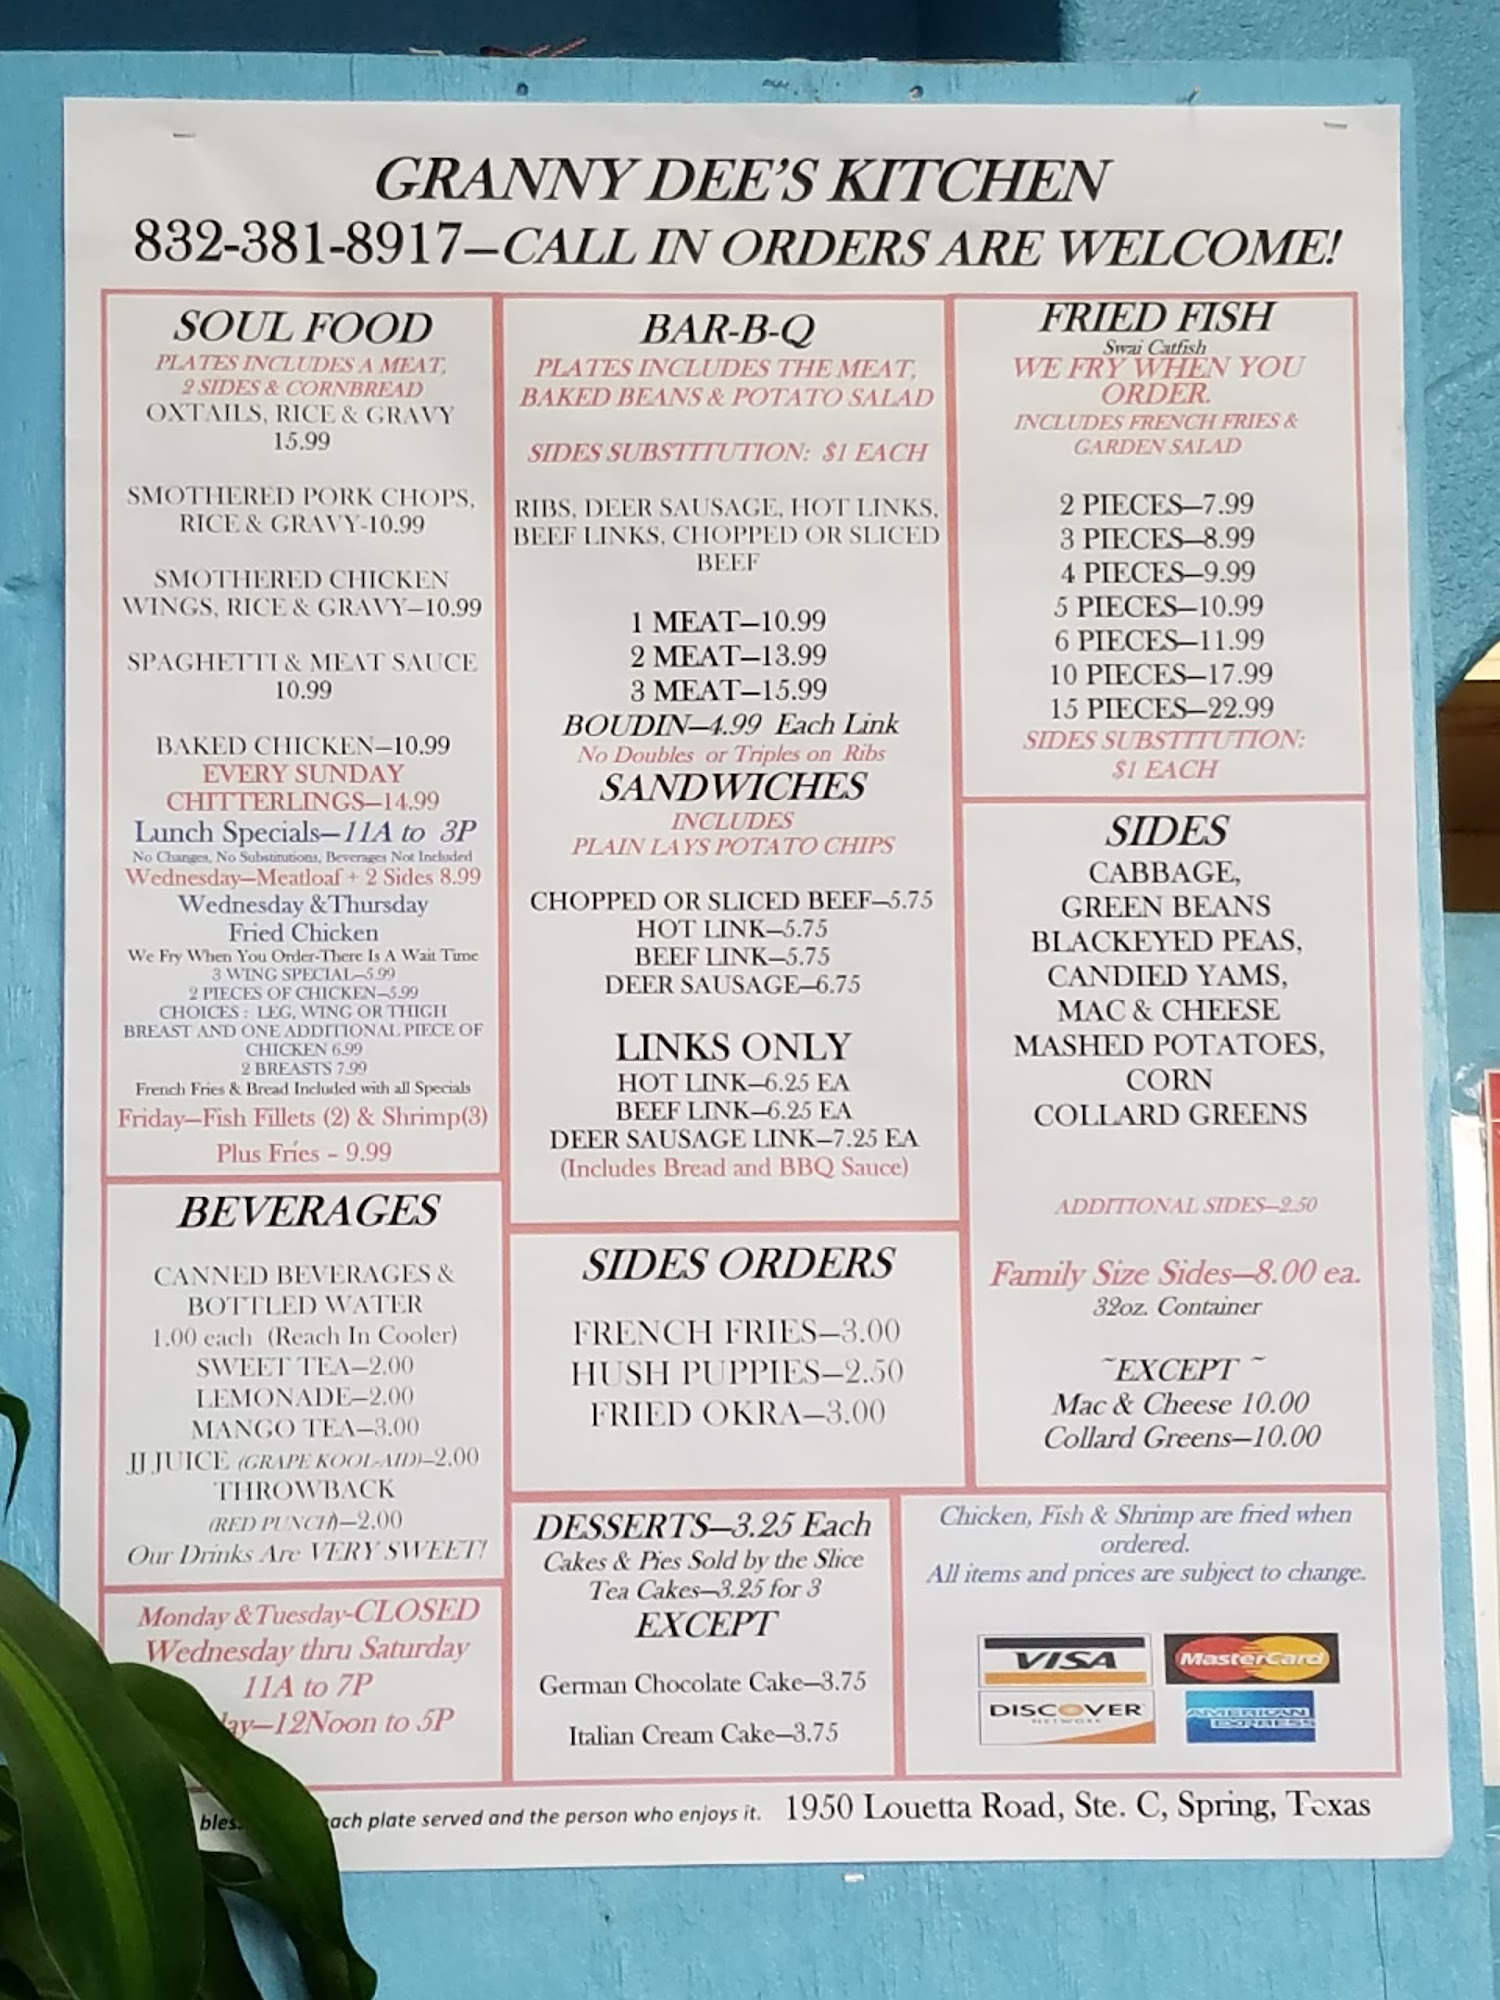 GRANNY DEE'S KITCHEN
832-381-8917—CALL IN ORDERS ARE WELCOME!
SOUL FOOD
PLATES INCLUDES A MEAT,
2 SIDES & CORNBREAD
OXTAILS, RICE & GRAVY
15.99
SMOTHERED PORK CHOPS,
RICE & GRAVY-10.99
SMOTHERED CHICKEN
WINGS, RICE & GRAVY—10.99
SPAGHETTI & MEAT SAUCE
10.99
BAKED CHICKEN—10.99
EVERY SUNDAY
CHITTERLINGS—14.99
Lunch Specials—11A to 3P
No Changes, No Substitutions, Beverages Not Included
Wednesday—Meatloaf + 2 Sides 8.99
Wednesday &Thursday
Fried Chicken
We Fry When You Order-There Is A Wait Time
3 WING SPECIAL—5.99
2 PIECES OF CHICKEN—5.99
CHOICES : LEG, WING OR THIGH
BREAST AND ONE ADDITIONAL PIECE OF
CHICKEN 6.99
2 BREASTS 7.99
French Fries & Bread Included with all Specials
Friday—Fish Fillets (2) & Shrimp(3)
Plus Fries - 9.99
BEVERAGES
CANNED BEVERAGES &
BOTTLED WATER
1.00 each (Reach In Cooler)
SWEET TEA—2.00
LEMONADE—2.00
MANGO TEA—3.00
JJ JUICE (GRAPE KOOL-AID)—2.00
THROWBACK
(RED PUNCH)—2.00
Our Drinks Are VERY SWEET!
Monday &Tuesday-CLOSED
Wednesday thru Saturday
11A to 7P
ay—12Noon to 5P
BAR-B-Q
PLATES INCLUDES THE MEAT,
BAKED BEANS & POTATO SALAD
SIDES SUBSTITUTION: $1 EACH
RIBS, DEER SAUSAGE, HOT LINKS,
BEEF LINKS, CHOPPED OR SLICED
BEEF
1 MEAT—10.99
2 MEAT—13.99
3 MEAT—15.99
BOUDIN—4.99 Each Link
No Doubles or Triples on Ribs
SANDWICHES
INCLUDES
PLAIN LAYS POTATO CHIPS
CHOPPED OR SLICED BEEF—5.75
HOT LINK—5.75
BEEF LINK—5.75
DEER SAUSAGE—6.75
LINKS ONLY
HOT LINK—6.25 EA
BEEF LINK—6.25 EA
DEER SAUSAGE LINK—7.25 EA
(Includes Bread and BBQ Sauce)
SIDES ORDERS
FRENCH FRIES—3.00
HUSH PUPPIES—2.50
FRIED OKRA—3.00
DESSERTS—3.25 Each
Cakes & Pies Sold by the Slice
Tea Cakes—3.25 for 3
EXCEPT
German Chocolate Cake—3.75
Italian Cream Cake—3.75
FRIED FISH
Swai Catfish
WE FRY WHEN YOU
ORDER.
INCLUDES FRENCH FRIES &
GARDEN SALAD
2 PIECES—7.99
3 PIECES—8.99
4 PIECES—9.99
5 PIECES—10.99
6 PIECES—11.99
10 PIECES—17.99
15 PIECES—22.99
SIDES SUBSTITUTION:
$1 EACH
SIDES
CABBAGE,
GREEN BEANS
BLACKEYED PEAS,
CANDIED YAMS,
MAC & CHEESE
MASHED POTATOES,
CORN
COLLARD GREENS
ADDITIONAL SIDES—2.50
Family Size Sides—8.00 ea.
32oz. Container
~EXCEPT ~
Mac & Cheese 10.00
Collard Greens—10.00
Chicken, Fish & Shrimp are fried when
ordered.
All items and prices are subject to change.
VISA MasterCard
DISCOVER AMERICAN
NETWORK EXPRESS
plate served and the person who enjoys it. 1950 Louetta Road, Ste. C, Spring, Texas